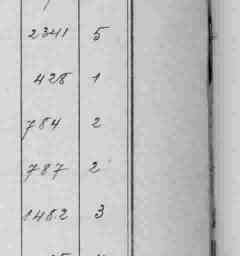 2341 5
428 1
784 2
787 2
1482 3